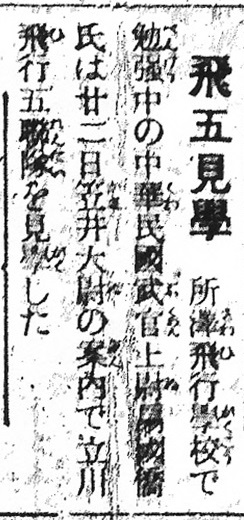 飛五見學
所澤飛行學校で
勉强中の中華民國武官上尉
氏は廿二日笠井大尉の案内で立川
飛行五聯隊を見學した